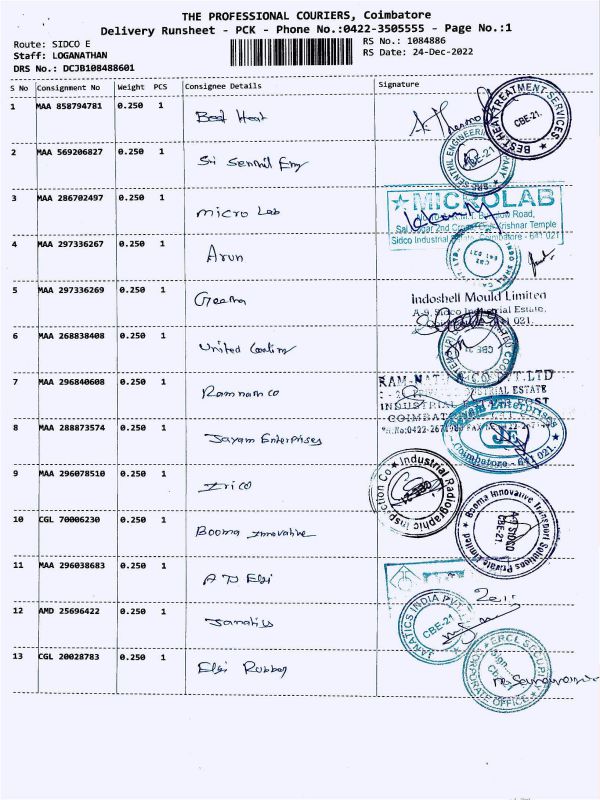 THE PROFESSIONAL COURIERS, Coimbatore
Delivery Runsheet - PCK - Phone No.:0422-3505555 - Page No.:1
Route: SIDCO E
RS No.: 1084886
Staff: LOGANATHAN
RS Date: 24-Dec-2022
DRS No.: DCJB108488601
S No Consignment No Weight PCS Consignee Details Signature
1 MAA 858794781 0.250 1 Best Heat
BEST HEAT TREATMENT SERVICES CBE-21.
2 MAA 569206827 0.250 1 Sri Senthil Eng
SRI SENTHIL ENGINEERING COMPANY CBE-21
3 MAA 286702497 0.250 1 Micro Lab
MICROLAB
Road,
Krishnar Temple
Sidco Industrial Coimbatore - 641 021
4 MAA 297336267 0.250 1 Arun
5 MAA 297336269 0.250 1 Geetha
Indoshell Mould Limited
A-9, Sidco Industrial Estate,
021.
6 MAA 268838408 0.250 1 United Cooling
7 MAA 296840608 0.250 1 Ramnath co
RAM-NATH & CO PVT.LTD
INDUSTRIAL ESTATE
INDUSTRIAL ESTATE POST
COIMBATORE
8 MAA 288873574 0.250 1 Jayam Enterprises
Jayam Enterprises JE Coimbatore - 641 021.
9 MAA 296078510 0.250 1 Irico
Industrial Radiographic Inspection Co
10 CGL 70006230 0.250 1 Booma Innovative
Booma Innovative Transport Solutions Private Limited SIDCO CBE-21.
11 MAA 296038683 0.250 1 ATJ Elgi
12 AMD 25696422 0.250 1 Janatics
JANATICS INDIA PVT CBE-21
13 CGL 20028783 0.250 1 Elgi Rubber
SECURITY CORPORATE OFFICE